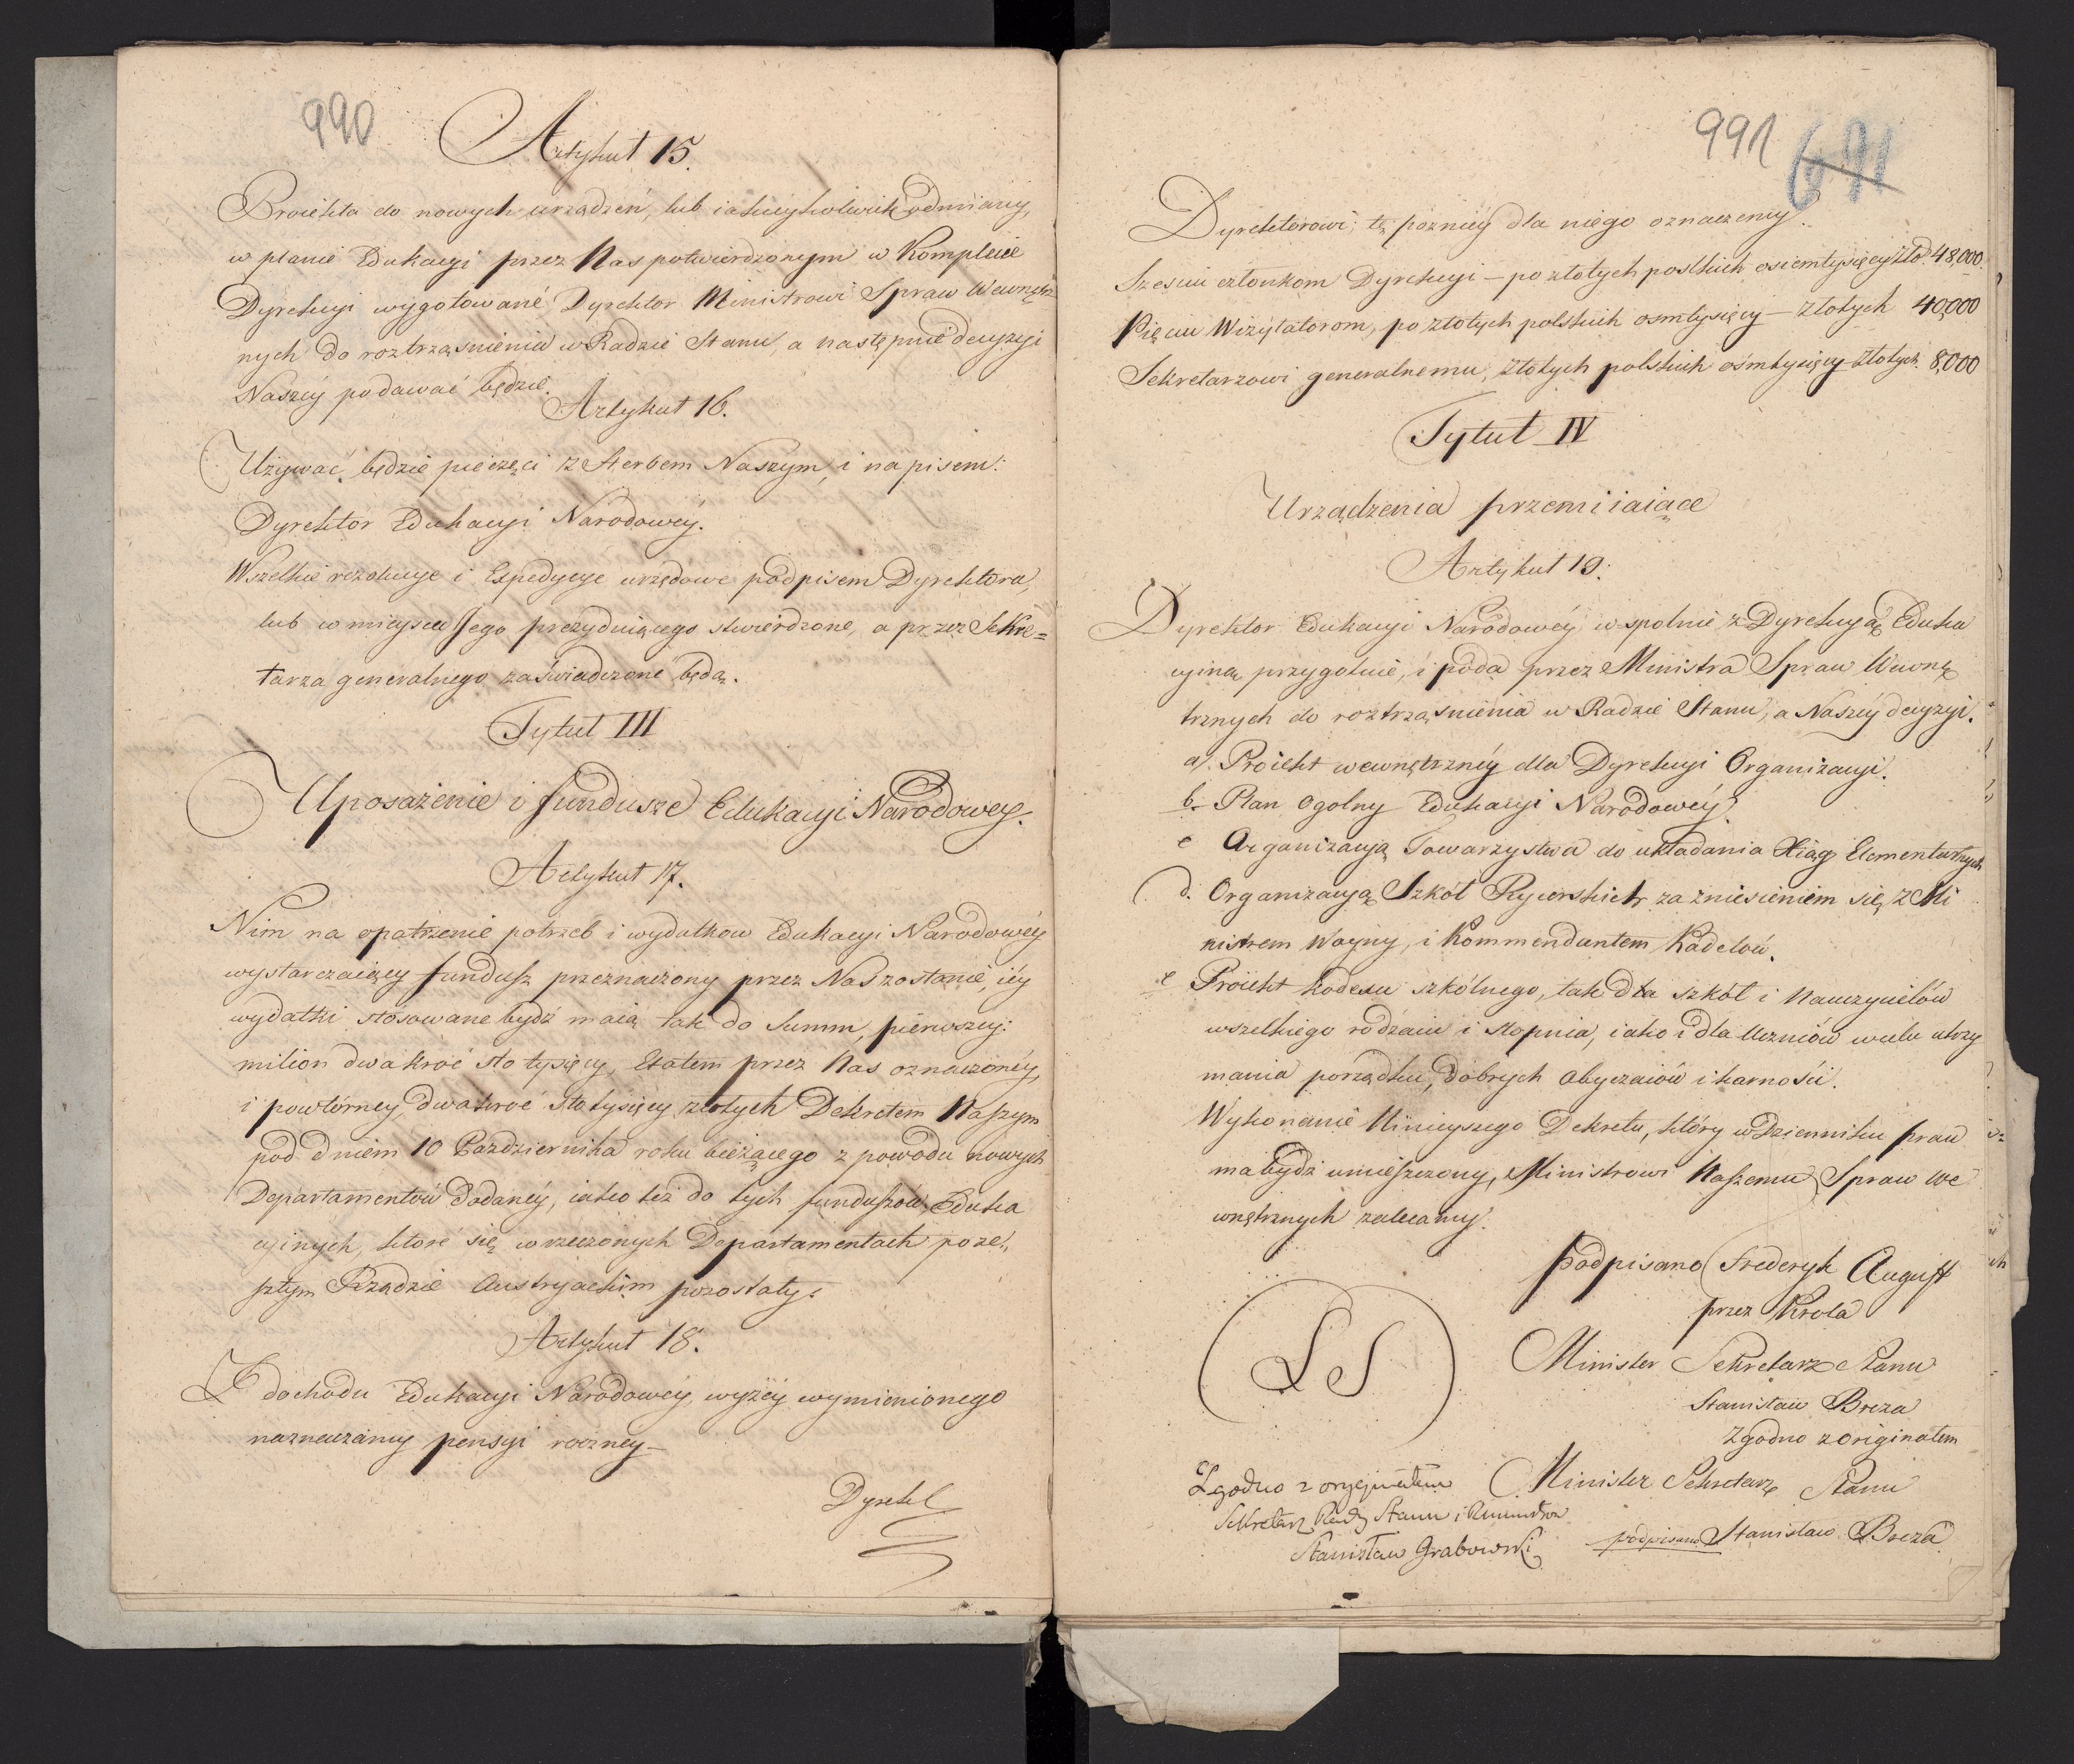 990
Artykuł 15.
Proiekta do nowych urządzeń, lub iakieykolwiek odmiany,
w planie Edukacyi przez Nas potwierdzonym w Komplecie
Dyrekcyi wygotowane Dyrektor Ministrowi Spraw Wewnętrz
nych do roztrząśnienia w Radzie Stanu, a następnie decyzyi
Naszey podawać będzie.
Artykuł 16.
Używać będzie pieczęci z Herbem Naszym, i napisem:
Dyrektor Edukacyi Narodowey.
Wszelkie rezolucye i Expedycye urzędowe podpisem Dyrektora,
lub w mieyscu Jego prezyduiącego stwierdzone, a przez Sekre=
tarza generalnego zaświadczone będą.
Tytuł III
Uposażenie i fundusze Edukacyi Narodowey.
Artykuł 17.
Nim na opatrzenie potrzeb i wydatkow Edukacyi Narodowey
wystarczaiący fundusz przeznaczony przez Nas zostanie, iéy
wydatki stosowane bydź maią tak do Summ, pierwszey:
milion dwakroć sto tysięcy, Etatem przez Nas oznaczoney,
i powtórney dwakroć sto tysięcy złotych Dekretem Naszym
pod dniem 10 Pazdziernika roku bieżącego z powodu nowych
Departamentów dodaney, iako też do tych funduszów Eduka
cyinych, które się w rzeczonych Departamentach po ze„
szłym Rządzie Austryackim pozostały.
Artykuł 18.
Z dochodu Edukacyi Narodowey wyżey wymienionego
naznaczamy pensyi roczney—
Dyrekt
991
691
Dyrektorowi; tę pozniey dla niego oznaczemy.
Szesciu członkom Dyrekcyi – po złotych polskich osiemtysięcy Zło. 48,000.
Pięciu Wizytatorom, po złotych polskich osmtysięcy – Złotych 40,000
Sekretarzowi generalnemu, złotych polskich ośmtysięcy Złotych 8,000
Tytuł IV
Urządzenia przemiiaiące
Artykuł 19.
Dyrektor Edukacyi Narodowey wspolnie z Dyrekcyą Eduka
cyiną przygotuie, i poda przez Ministra Spraw Wewnę
trznych do roztrząśnienia w Radzie Stanu, a Naszey decyzyi.
a). Proiekt wewnętrzney dla Dyrekcyi Organizacyi.
b. Plan Ogolny Edukacyi Narodowey.
c Organizacyą Towarzystwa do układania Xiąg Elementarnych
d. Organizacyą Szkół Rycerskich za zniesieniem się z Mi
nistrem Woyny, i Kommendantem Kadetów.
e Proiekt kodexu szkólnego, tak dla szkół i Nauczycielów
wszelkiego rodzaiu i stopnia, iako i dla Uczniów wcelu utrzy
mania porządku, dobrych obyczaiów i karności.
Wykonanie Ninieyszego Dekretu, który w Dzienniku praw
ma bydź umieszczony, Ministrowi Naszemu Spraw We
wnętrznych zalecamy.
podpisano Frederyk August
przez Krola
Minister Sekretarz Stanu
Stanisław Breza
Zgodno z originałem
LS
Minister Sekretarz Stanu
podpisano Stanisław Breza
Zgodno z oryginałem
Sekretarz Rady Stanu i Ministrow
Stanisław Grabowski